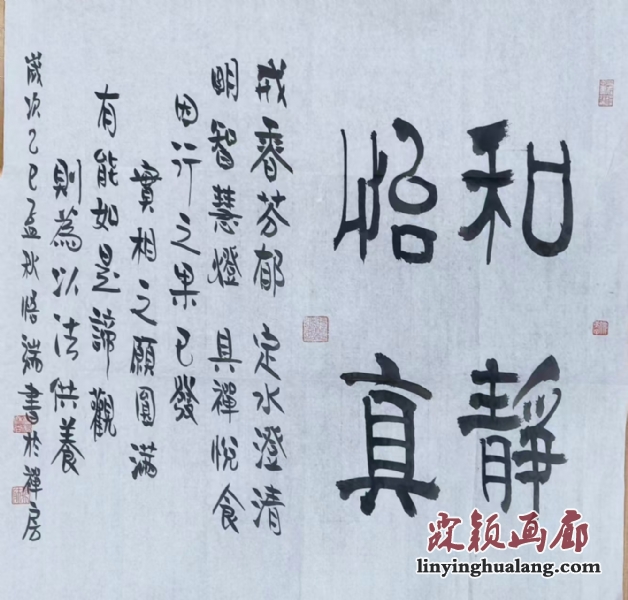 和靜
怡真
戒香芬郁 定水澄清
明智慧燈 具禪悅食
因行之果已發
實相之願圓滿
有能如是諦觀
則為以法供養
歲次乙巳孟秋悟滿書於禪房
霖颖画廊
linyinghualang.com